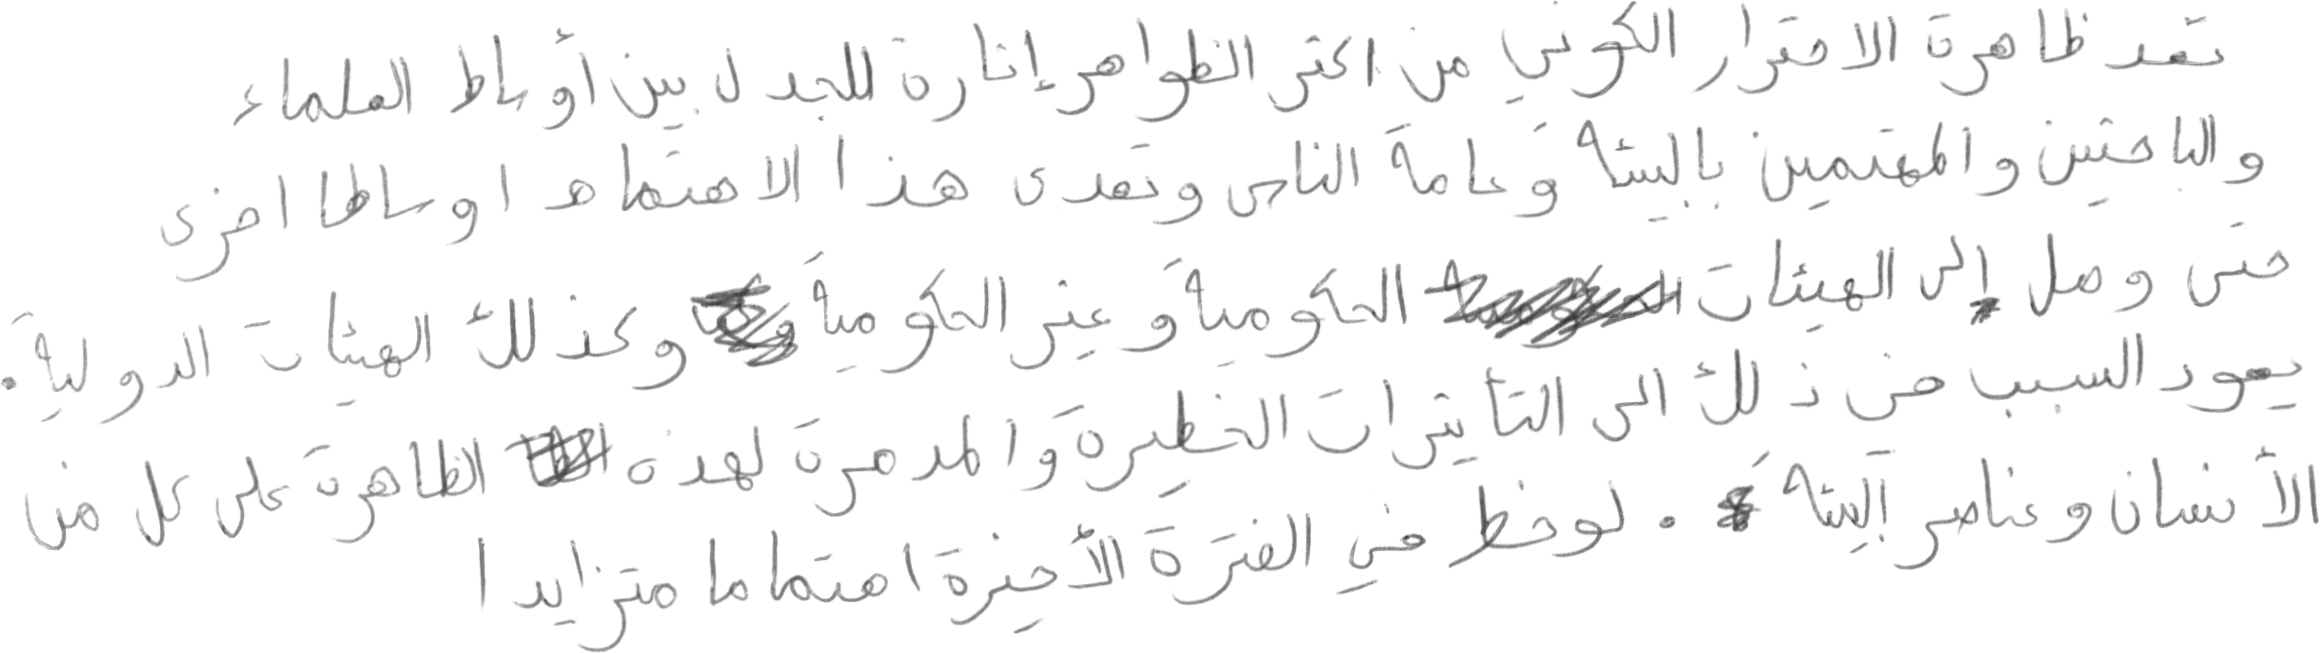 تعد ظاهرة الاحترار الكوني من اكثر الظواهر إثارة للجدل بين أوساط العلماء
والباحثين والمهتمين بالبيئة وعامة الناس وتعدى هذا الاهتمام اوساطا اخرى
حتى وصل إلى الهيئات الحكومية وغير الحكومية وكذلك الهيئات الدولية.
يعود السبب في ذلك الى التأثيرات الخطيرة والمدمرة لهذه الظاهرة على كل من
الأنسان وعناصر البيئة. لوحظ في الفترة الأخيرة اهتماما متزايدا